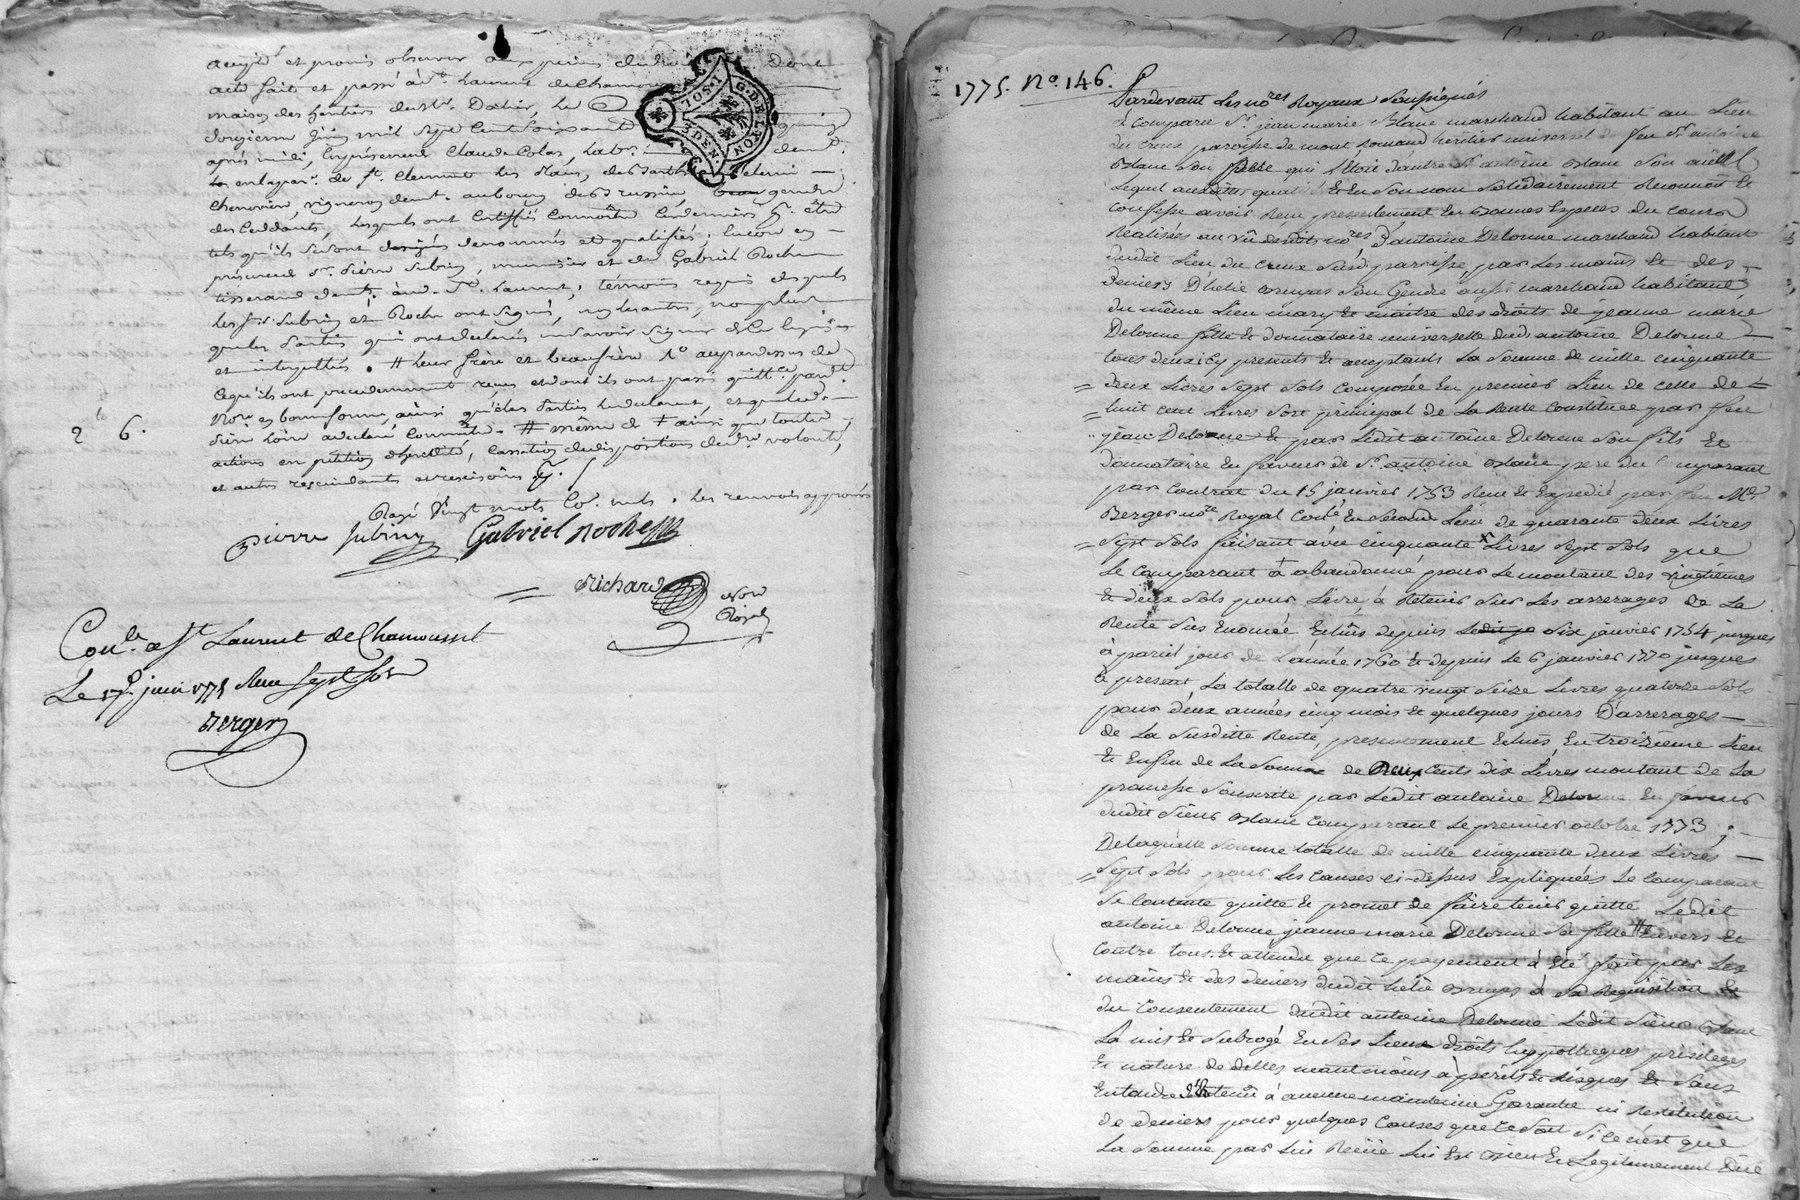 accepté et promis observer aux peines de droit Dont
acte fait et passé à St. Laurent de Chamousset
maison des heritiers du Sr. Dothier, le
douzieme juin mil sept cent soixante quinze
après midi, En presence Claude Colas, lab.
de St. Clement les places, des
vigneron demt. au bourg de Brussieu, gendre
des Ceddants, lesquels ont certiffié connoître ces derniers pr. être
tels qu'ils se sont designés denommés et qualifiés, Encore en
présence de sr. Pierre Subrin, menuisier et de Gabriel Roche
tisserand demt. aud. St. Laurent, témoins requis desquels
lesd. s. Subrin et Roche ont signés, non les autres, non plus
que les Parties qui ont declarés ne savoir signer de ce enquis
et interpellés. # leur frère et beaufrère 1o au pardessus de
ce qu'ils ont precedemment reçus et dont ils ont passé quittce. pardt.
Nore. en bonne forme, ainsi qu'elles Parties le declarent, et que led.
Pierre Loire a declaré connoître. # même de + ainsi que toutes
2 6.
actions en petition d'heredité, cassation de dispositions de der. volonté,
et autres rescindants et rescisoires
Rayé vingt mots les renvois approuvés
pierre Subrin Gabriel Roche
Richard Nore Royal
Con.le à St Laurent de Chamousset
Le 17 juin 1775 Reçu sept sols
Berger
G. DE LYON
1. SOL
1775. No. 146.
Pardevant Les nores Royaux soussignés
a comparu Sr. jean marie Blanc marchand habitant au Lieu
du creux paroisse de montromand heritier universel de feu Sr. antoine
Blanc Son père qui l'étoit d'autre Sr. antoine Blanc Son aieul
Lequel auxdittes qualités Et En Son nom Solidairement Reconnoit Et
confesse avoir Reçu presentement En Bonnes Especes du cours
Realisées au vû desdits nores D'antoine Delorme marchand habitant
dudit Lieu du creux susd paroisse, par les mains Et des
deniers D'helie Brunas Son Gendre aussi marchand habitant
du même Lieu mary Et maitre des droits de jeanne marie
Delorme fille Et donnataire universelle dud antoine Delorme
tous deux icy presents Et acceptants La Somme de mille cinquante
deux Livres Sept Sols Composée En premier Lieu de celle de
huit cent Livres Sort principal de La Rente Constituée par feu
jean Delorme Et par Ledit antoine Delorme Son fils Et
donnataire En faveur de Sr. antoine Blanc pere du Comparant
par Contrat du 15 janvier 1753 Reçu Et Expedié par feu Me.
Berger nore Royal Conlé, En Second Lieu de quarante deux Livres
Sept Sols faisant avec cinquante x Livres Sept Sols que
Le Comparant a abandonné pour Le montant des vingtiemes
Et deux Sols pour Livre à Retenir Sur Les arrerages de La
Rente Sus Enoncée Echûs depuis Le dix janvier 1754 jusques
à pareil jour de L'année 1760 Et depuis Le 6 janvier 1770 jusques
a present, La totalle de quatre vingt Seize Livres quatorze Sols
pour deux années cinq mois Et quelques jours D'arrerages
de La Susditte Rente, presentement Echus, En troisieme Lieu
Et Enfin de La Somme de Deux cents dix Livres montant de La
promesse Souscrite par Ledit antoine Delorme En faveur
dudit Sieur Blanc Comparant Le premier octobre 1773;
De laquelle Somme totalle de mille cinquante deux Livres
Sept Sols pour Les causes ci-dessus Expliquées Le Comparant
Se Contente quitte Et promet de faire tenir quitte Ledit
antoine Delorme jeanne marie Delorme Sa fille # Envers Et
Contre tous. Et attendu que ce payement à Eté fait par Les
mains Et des deniers dudit helie Brunas à Sa Requisition Et
du Consentement dudit antoine Delorme Ledit Sieur Blanc
La mis Et Subrogé En Ses Lieux droits hyppotheques privileges
Et nature de dettes neantmoins à perils Et Risques Et Sans
Entendre Etre tenu à aucune maintenue Garantie ni Restitution
de deniers pour quelques causes que ce Soit Si ce n'est que
La Somme par lui Reçüe Lui Est Bien Et Legitimement Düe